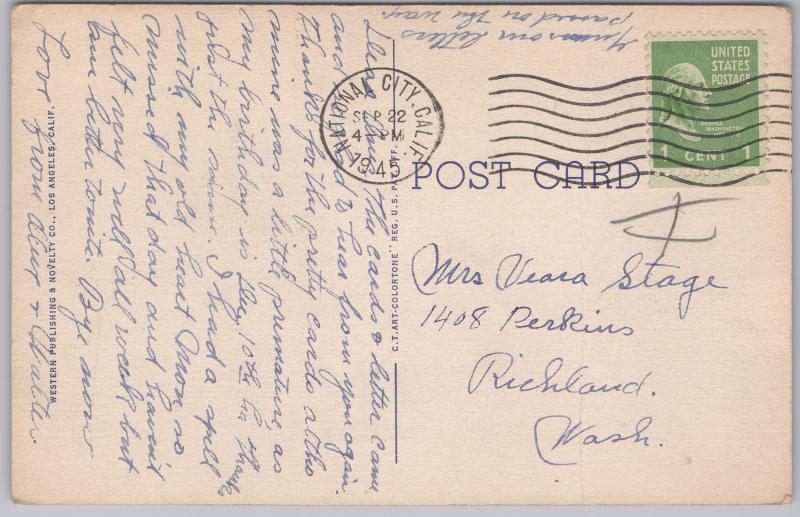 I guess our letters
passed on the way.
Dear The cards & letter came
and glad to hear from you again.
Thanks for the pretty cards altho
mine was a little premature, as
my birthday is Dec. 10th ha, thanks
just the same. I had a spell
with my old heart Mon. so
missed that day and haven't
felt very well all week but
am better tonite. Bye now
Love from &
WESTERN PUBLISHING & NOVELTY CO., LOS ANGELES, CALIF.
C.T. ART-COLORTONE" REG. U.S. PAT. OFF.
NATIONAL CITY, CALIF.
SEP 22
4 PM
1945
UNITED
STATES
POSTAGE
GEORGE
WASHINGTON
1 CENT 1
POST CARD
Mrs Veara Stage
1408 Perkins
Richland.
Wash.